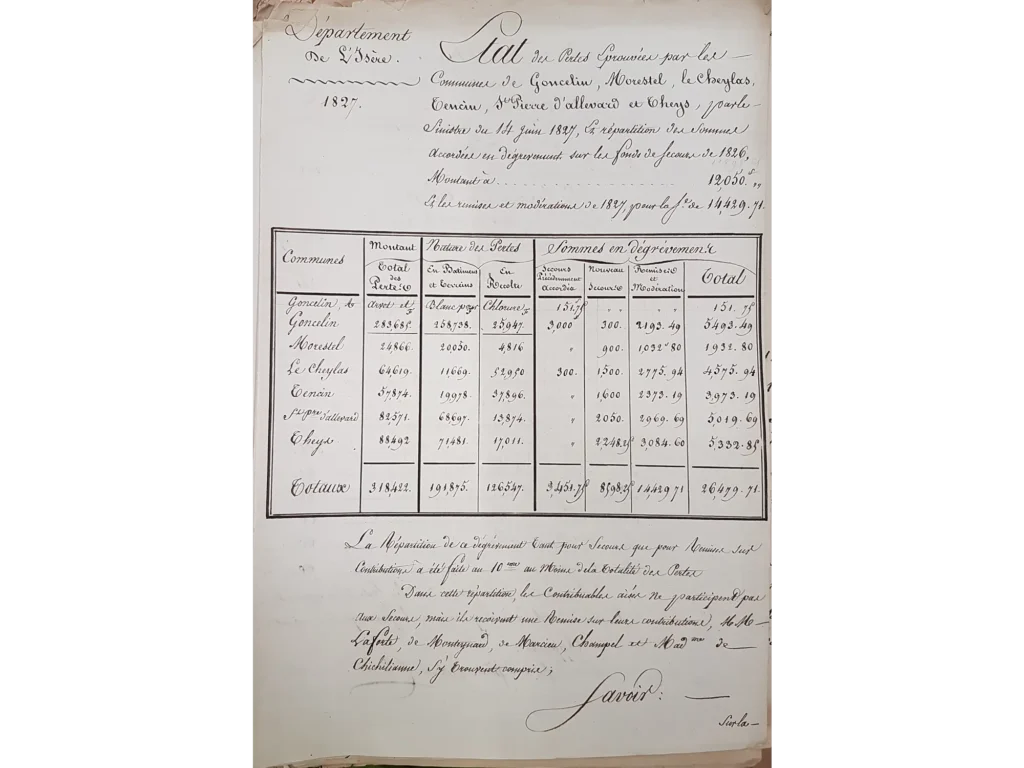 Département
De L'Isère.
1827.
Etat des Pertes Eprouvées par les
Communes de Goncelin, Morestel, le Cheylas,
Tencin, St Pierre d'allevard et Theys, par le
Sinistre du 14 juin 1827, Et répartition des Sommes
Accordées en dégrèvement sur les fonds de Secours de 1826,
Montant à 12,050.f „
Et les remises et modérations de 1827, pour la Sme de 14,429.71.
Communes Montant Nature des Pertes Sommes en dégrèvement
Total des Pertes En Batimens et Terreins En Récolte Secours Précédemment Accordés Nouveaux Secours Remises et Modération Total
Goncelin, Blanc Chlorure 151.75 „ „ 151.75
Goncelin 283685. 258738. 25947. 3,000 300. 2193.49 5493.49
Morestel 24,866. 20,050. 4,816 „ 900. 1,032.80 1932.80
Le Cheylas 64,619. 11,669. 52950 300. 1,500. 2775.94 4,575.94
Tencin 57,874. 19,978. 37,896. „ 1,600 2373.19 3,973.19
St pre d'allevard 82,571. 68,697. 13,874. „ 2050. 2969.69 5,019.69
Theys 88,492 71,481. 17,011. „ 2,248.25 3,084.60 5,332.85
Totaux 318,422. 191,875. 126,547. 3,451.75 8598.25 14,429 71 26,479.71.
La Répartition de ce dégrèvement tant pour Secours que pour Remises sur
Contributions a été faite au 10eme au Moins de la totalité des Pertes
Dans cette répartition, les Contribuables aisés ne participent pas
aux Secours, mais ils reçoivent une Remise sur leurs contributions, M.M
Laforte, de Monteynard, de Marcieu, Champel et Mad.me de
Chichilianne, s'y trouvent compris;
Savoir:
Sur la